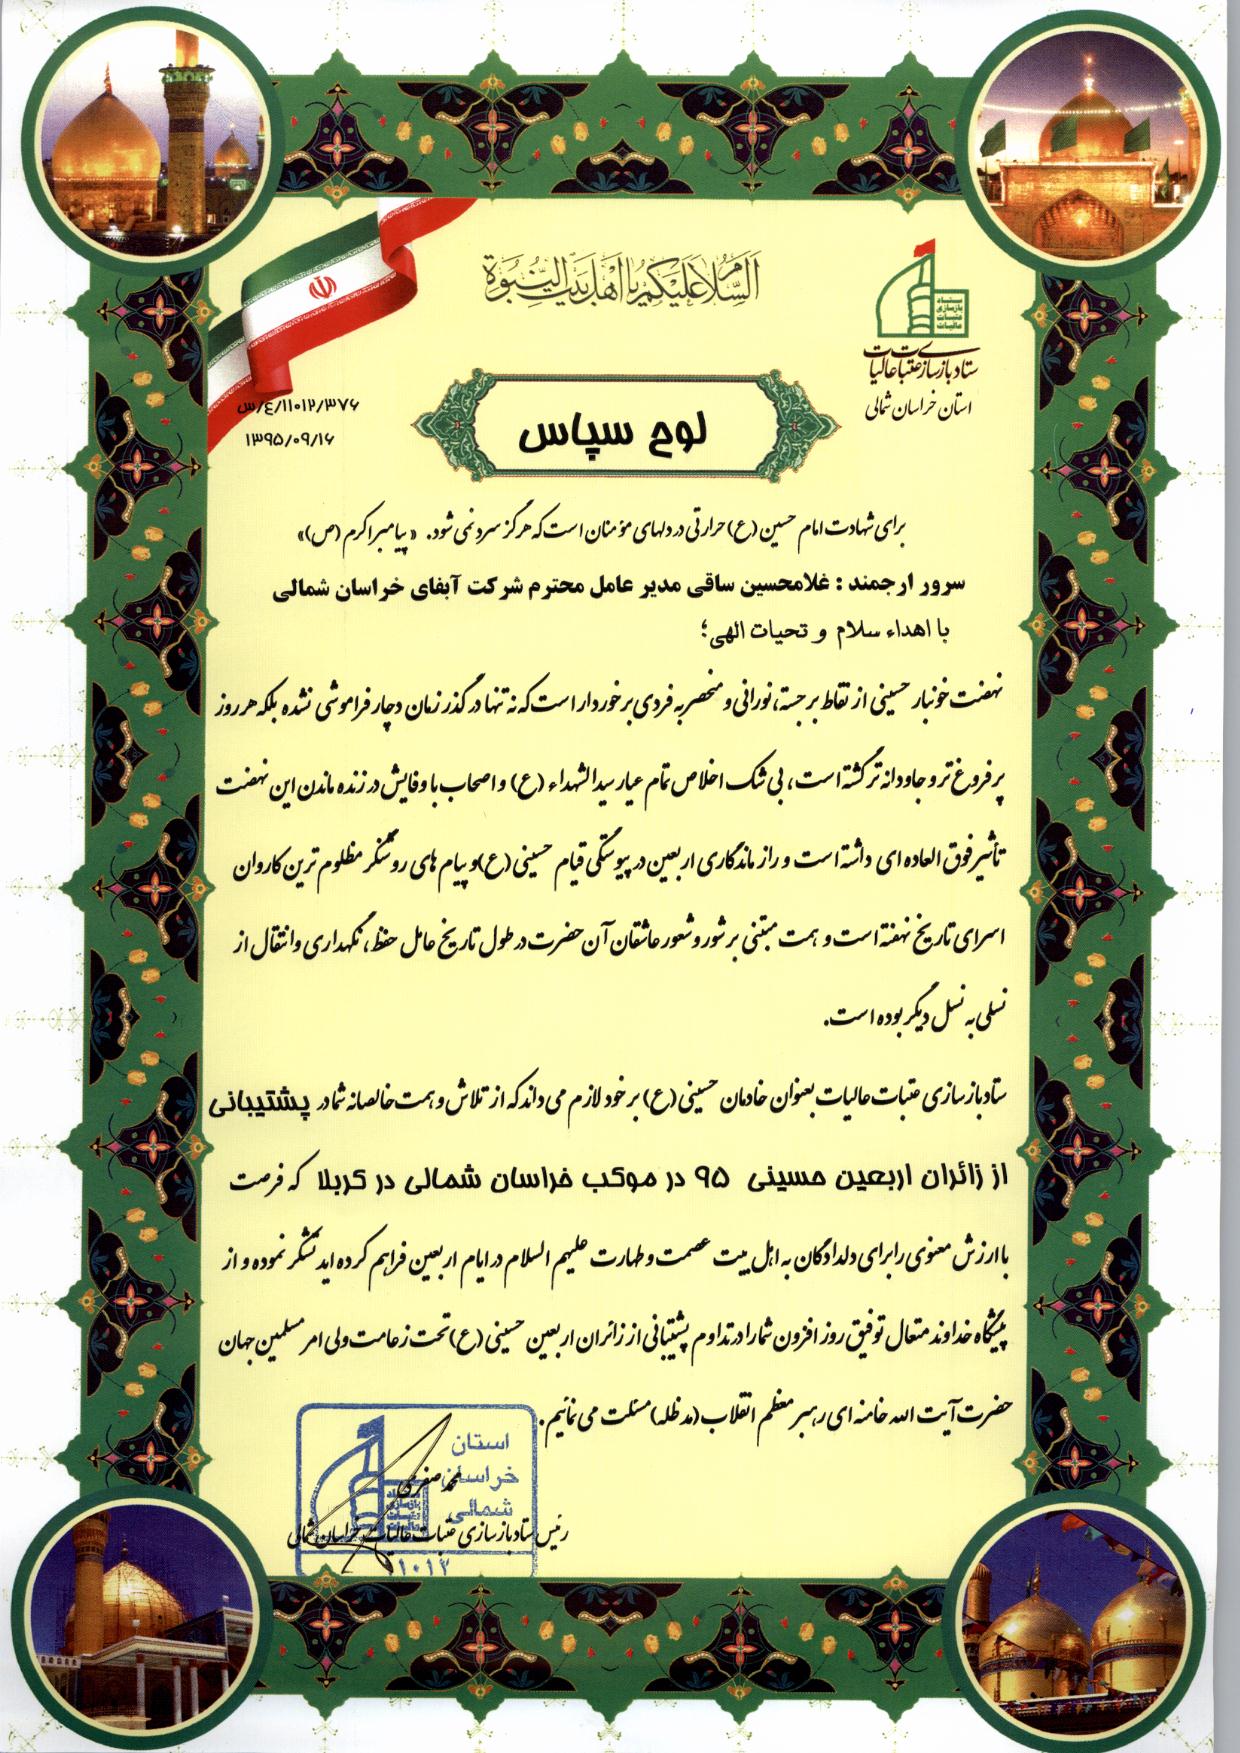 السلام علیکم یا اهل بیت النبوة
ستاد
بازسازی
عتبات
عالیات
ستاد بازسازی عتبات عالیات
استان خراسان شمالی
۱۱۰۱۲/۳۷۶/ع/س
۱۳۹۵/۰۹/۱۶
لوح سپاس
برای شهادت امام حسین (ع) حرارتی در دلهای مؤمنان است که هرگز سرد نمی شود. «پیامبر اکرم (ص)»
سرور ارجمند : غلامحسین ساقی مدیر عامل محترم شرکت آبفای خراسان شمالی
با اهداء سلام و تحیات الهی؛
نهضت خونبار حسینی از نقاط برجسته، نورانی و منحصر به فردی برخوردار است که نه تنها در گذر زمان دچار فراموشی نشده بلکه هر روز
پر فروغ تر و جاودانه تر گشته است، بی شک اخلاص تمام عیار سیدالشهداء (ع) و اصحاب با وفایش در زنده ماندن این نهضت
تأثیر فوق العاده ای داشته است و راز ماندگاری اربعین در پیوستگی قیام حسینی (ع) و پیام های روشنگر مظلوم ترین کاروان
اسرای تاریخ نهفته است و همت مبتنی بر شور و شعور عاشقان آن حضرت در طول تاریخ عامل حفظ، نگهداری و انتقال از
نسلی به نسل دیگر بوده است.
ستاد بازسازی عتبات عالیات بعنوان خادمان حسینی (ع) بر خود لازم می داند که از تلاش و همت خالصانه شما در پشتیبانی
از زائران اربعین حسینی ۹۵ در موکب خراسان شمالی در کربلا که فرصت
با ارزش معنوی را برای دلدادگان به اهل بیت عصمت و طهارت علیهم السلام در ایام اربعین فراهم کرده اید تشکر نموده و از
پیشگاه خداوند متعال توفیق روز افزون شما را در تداوم پشتیبانی از زائران اربعین حسینی (ع) تحت زعامت ولی امر مسلمین جهان
حضرت آیت الله خامنه ای رهبر معظم انقلاب (مد ظله) مسئلت می نمائیم.
استان
خراسان
شمالی
محمد صفری
رئیس ستاد بازسازی عتبات عالیات خراسان شمالی
۱۰۱۲